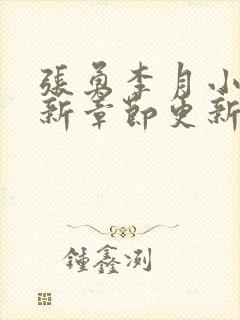 張勇李月小
新章節更新
鍾鑫浏